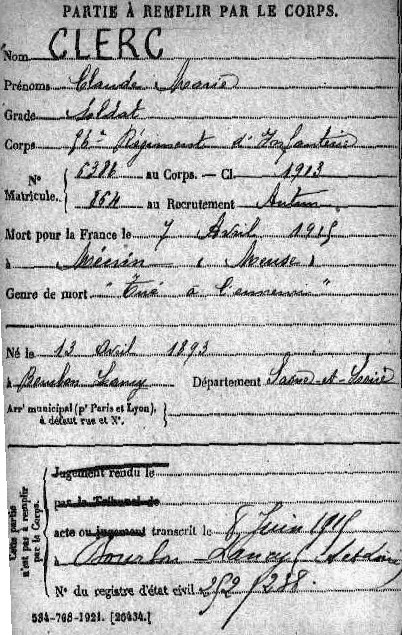 PARTIE À REMPLIR PAR LE CORPS.
Nom CLERC
Prénoms Claude Marie
Grade Soldat
Corps Régiment d'Infanterie
N° Matricule. { au Corps. — Cl. 1913
864 au Recrutement Autun
Mort pour la France le 7 Avril 1915
à (Meuse)
Genre de mort "Tué à l'ennemi"
Né le 13 Avril 1893
à Bourbon Lancy Département Saône-et-Loire
Arrᵗ municipal (pʳ Paris et Lyon), à défaut rue et N°. {
Cette partie n'est pas à remplir par le Corps. {
Jugement rendu le
par le Tribunal de
acte ou jugement transcrit le 8 Juin 1915
à Bourbon Lancy
N° du registre d'état civil 252/288.
534-708-1921. [26434.]